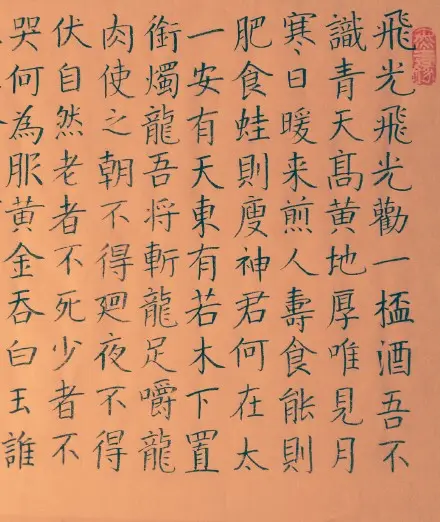 飛光飛光勸一杯酒吾不
識青天髙黃地厚唯見月
寒日暖来煎人壽食能則
肥食蛙則瘦神君何在太
一安有天東有若木下置
銜燭龍吾將斬龍足嚼龍
肉使之朝不得廻夜不得
伏自然老者不死少者不
哭何為服黃金吞白玉誰